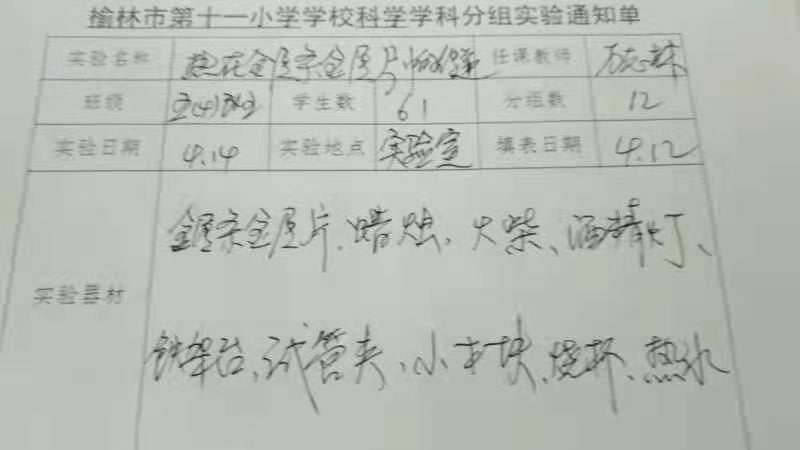 榆林市第十一小学学校科学学科分组实验通知单
实验名称 热在金属条金属片中的传递 任课教师
班级 学生数 61 分组数 12
实验日期 4.14 实验地点 实验室 填表日期 4.12
金属条金属片、蜡烛、火柴、酒精灯、
实验器材
铁架台、试管夹、小木块、烧杯、热水